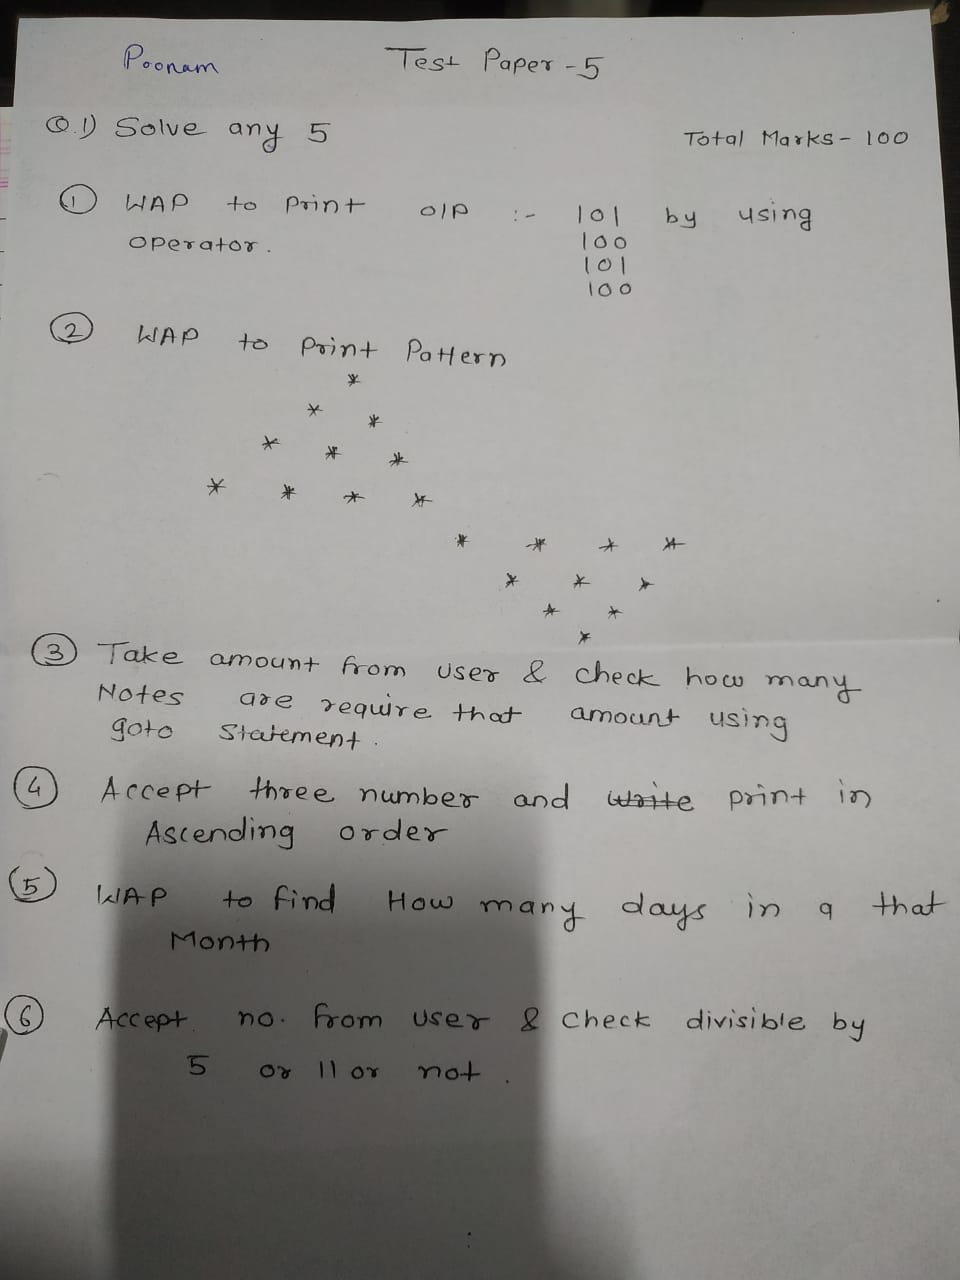 Poonam Test Paper - 5
Q.1) Solve any 5 Total Marks - 100
① WAP to print O/P :- 101 by using
operator. 100
101
100
② WAP to print Pattern
*
* *
* * *
* * * *
* * * *
* * *
* *
*
③ Take amount from user & check how many
Notes are require that amount using
goto Statement.
④ Accept three number and write print in
Ascending order
⑤ WAP to find How many days in a that
Month
⑥ Accept no. from user & check divisible by
5 or 11 or not.